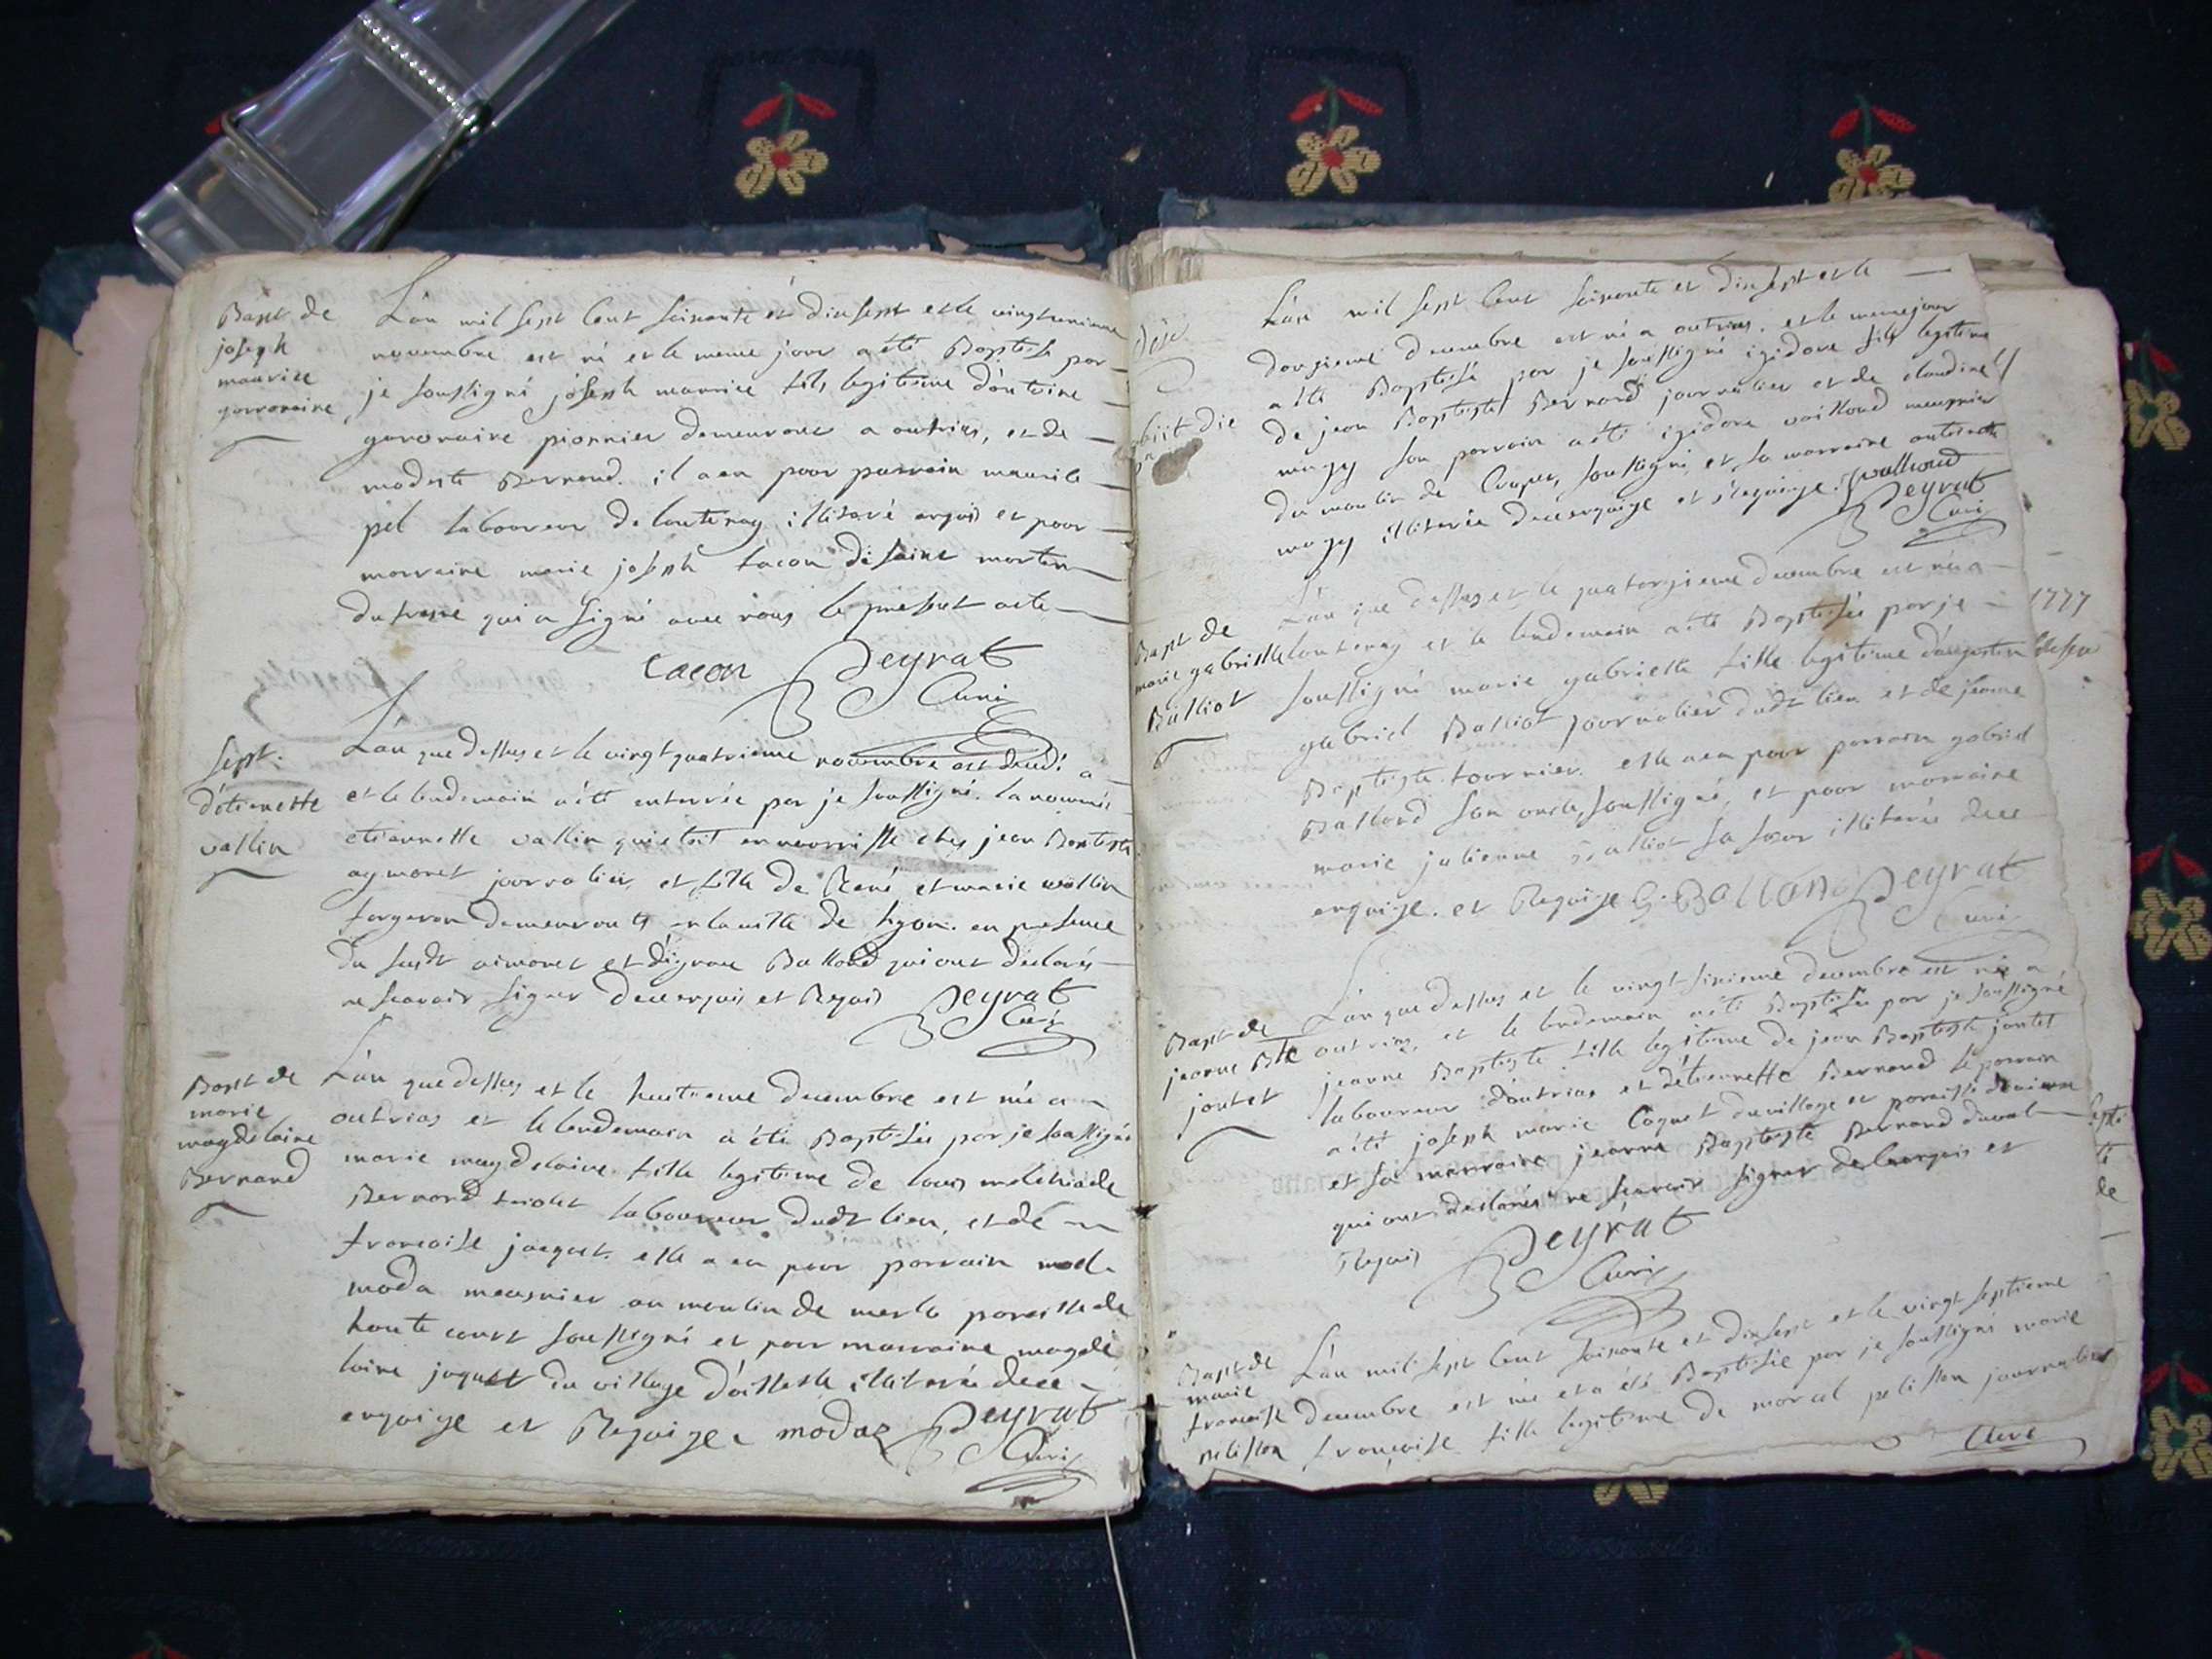 Bapt de
joseph
maurice
gavoraire
L'an mil sept Cent soixante et dix sept et le vingtunieme
novembre est né et le meme jour a été Baptisé par
je soussigné joseph maurice fils legitime d'antoine
gavoraire pionnier demeurant a outrias, et de
modeste Bernand. il a eu pour parrain maurile
pel laboureur de loutenay illiteré enquis et pour
marraine marie joseph tacon de saint martin
du fresne qui a signé avec nous le present acte
tacon Peyrat
Curé
Sept:
d'étiennette
vallin
L'an que dessus et le vingt quatrieme novembre est decedé a
et le lendemain a été enterrée par je soussigné. la nommée
etiennette vallin qui etoit en nourrisse ches jean Baptiste
aymonet journalier, et fille de René et marie vallin
forgeron demeurants en la ville de lyon. en presence
du susdt aimonet et Ballord qui ont declarés
ne scavoir signer de ce enquis et Requis Peyrat
Curé
Bapt de
marie
magdelaine
Bernand
L'an que dessus et le huitieme decembre est née a
outrias et le lendemain a été Baptisée par je soussigné
marie magdelaine fille legitime de louis melchiade
Bernand laboureur dudt lieu, et de
francoise jaquet. elle a eu pour parrain
moda meusnier au moulin de merlo paroisse de
haute court soussigné et pour marraine magde
laine jaquet du village illiterée de ce
enquise et Requise. modaz Peyrat
Curé
L'an mil sept Cent soixante et dix sept et le
douzieme decembre est né a outrias. et le meme jour
a été Baptisé par je soussigné izidore fils legitime
de jean Baptiste Bernand journalier et de claudine
mugy son parrain a été izidore vailloud meusnier
du moulin de soussigné, et sa marraine antoinette
mugy illiterée de ce enquise et Requise. vailloud
Peyrat
Curé
obiit die
Bapt de
marie gabrielle
Balliot
L'an que dessus et le quatorzieme decembre est née a
loutenay et le lendemain a été Baptisée par je
soussigné marie gabrielle fille legitime d'augustin
gabriel Balliot journalier dudt lieu et de jeanne
Baptiste tournier. elle a eu pour parrain gabriel
Balland son oncle, soussigné, et pour marraine
marie julienne Balliot sa sœur illiterée de ce
enquise. et Requise G. Balland Peyrat
Curé
1777
Bapt de
jeanne Bte
joutet
L'an que dessus et le vingt sixieme decembre est née a
outrias, et le lendemain a été Baptisée par je soussigné
jeanne Baptiste fille legitime de jean Baptiste joutet
laboureur d'outrias et d'étiennette Bernand le parrain
a été joseph marie Coquet du village et paroisse
et sa marraine jeanne Baptiste Bernand
qui ont declarés ne scavoir signer de ce enquis et
Requis Peyrat
Curé
Bapt de
marie
francoise
pelisson
L'an mil sept Cent soixante et dix sept et le vingt septieme
decembre est née et a été Baptisée par je soussigné marie
francoise fille legitime de marcel pelisson journalier
Curé